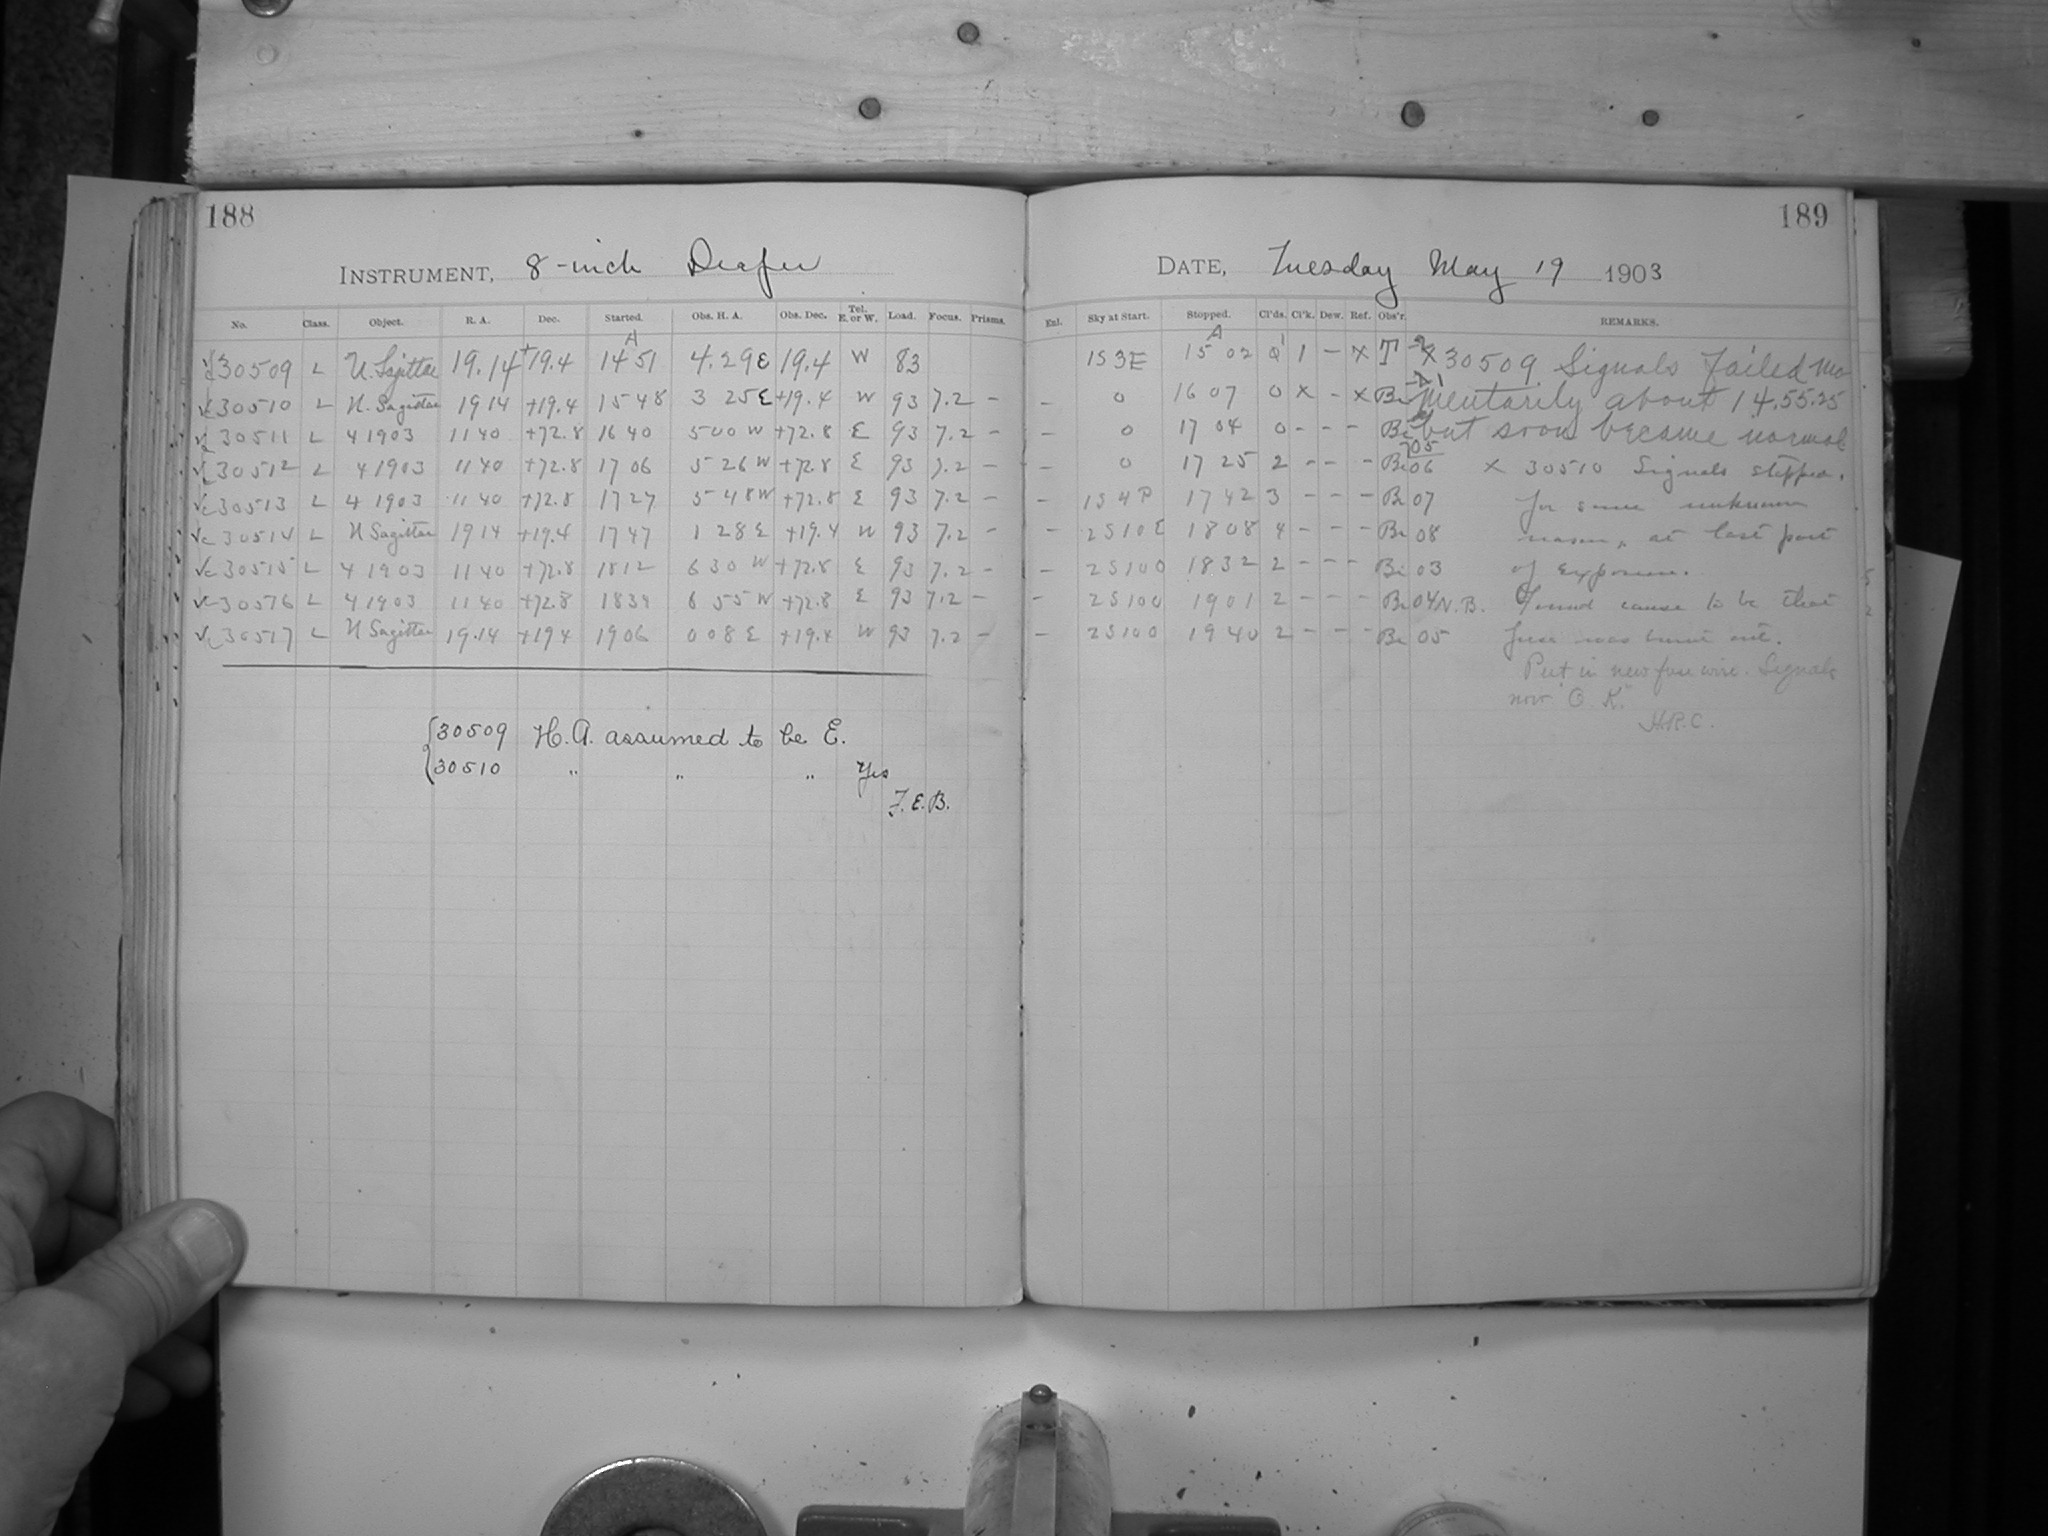 188
INSTRUMENT, 8-inch Draper
No. Class. Object. R. A. Dec. Started. Obs. H. A. Obs. Dec. Tel. E. or W. Load. Focus. Prisms.
30509 L U. Sagittae 19.14 +19.4 14 51 4.29 E 19.4 W 83
30510 L U. Sagittae 19 14 +19.4 15 48 3 25 E +19.4 W 93 7.2 -
30511 L 4 1903 11 40 +72.8 16 40 5 00 W +72.8 E 93 7.2 -
30512 L 4 1903 11 40 +72.8 17 06 5 26 W +72.8 E 93 7.2 -
30513 L 4 1903 11 40 +72.8 17 27 5 48 W +72.8 E 93 7.2 -
30514 L U Sagittae 19 14 +19.4 17 47 1 28 E +19.4 W 93 7.2 -
30515 L 4 1903 11 40 +72.8 18 12 6 30 W +72.8 E 93 7.2 -
30516 L 4 1903 11 40 +72.8 18 34 6 55 W +72.8 E 93 7.2 -
30517 L U Sagittae 19.14 +19.4 19 06 0 08 E +19.4 W 93 7.2 -
30509 H.A. assumed to be E.
30510 " " " Yes
F.E.B.
189
DATE, Tuesday May 19 1903
Enl. Sky at Start. Stopped. Cl'ds. Cl'k. Dew. Ref. Obs'r. REMARKS.
1S3E 15 02 1 - x T x 30509 Signals failed mo
- 0 16 07 0 x - x Bi mentarily about 14.55.25
- 0 17 04 0 - - - Bi but soon became normal
- 0 17 25 2 - - - Bi 06 x 30510 Signals stopped.
- 1S4P 17 42 3 - - - Bi 07 for some unknown
- 2S10E 18 08 4 - - - Bi 08 reason, at last part
- 2S100 18 32 2 - - - Bi 03 of exposure.
- 2S100 19 01 2 - - - Bi 04 N.B. Found cause to be that
- 2S100 19 40 2 - - - Bi 05 fuse was burnt out.
Put in new fuse wire. Signals
now "O.K."
H.R.C.